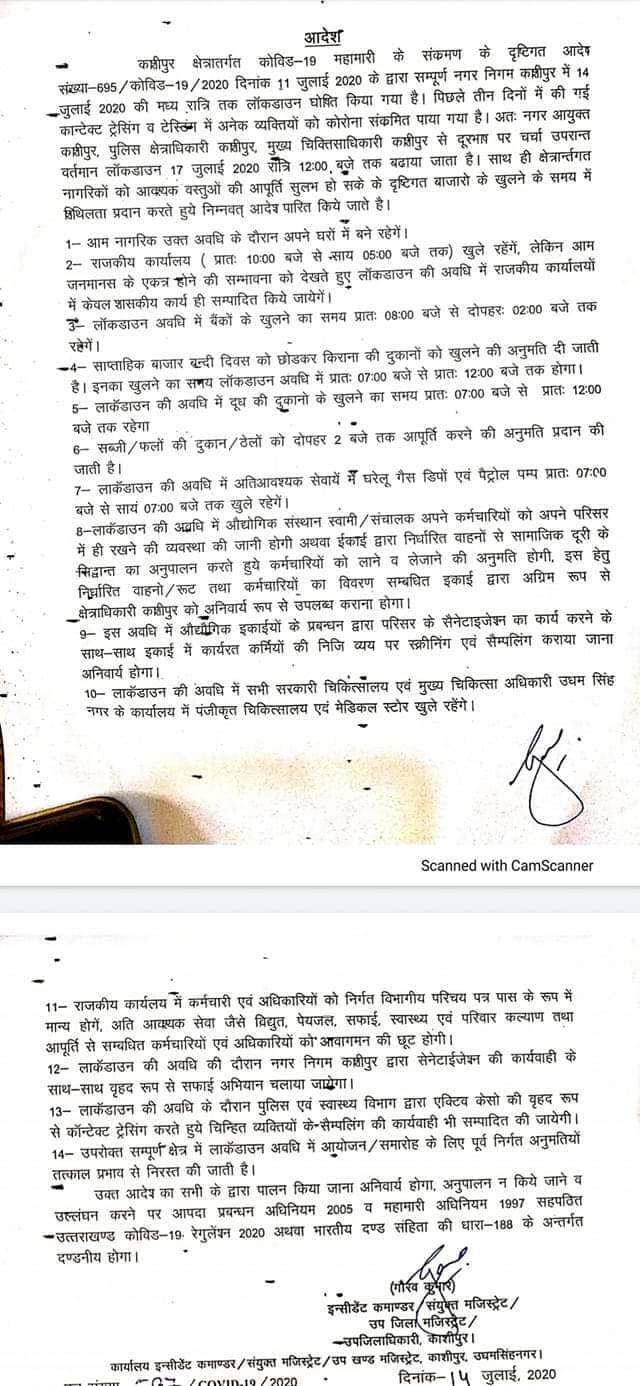 आदेश
काशीपुर क्षेत्रातर्गत कोविड–19 महामारी के संकमण के दृष्टिगत आदेश
संख्या–695/कोविड–19/2020 दिनांक 11 जुलाई 2020 के द्वारा सम्पूर्ण नगर निगम काशीपुर में 14
जुलाई 2020 की मध्य रात्रि तक लॉकडाउन घोषित किया गया है। पिछले तीन दिनों में की गई
कान्टेक्ट ट्रेसिंग व टेस्टिंग में अनेक व्यक्तियों को कोरोना संकमित पाया गया है। अतः नगर आयुक्त
काशीपुर, पुलिस क्षेत्राधिकारी काशीपुर, मुख्य चिक्तिसाधिकारी काशीपुर से दूरभाष पर चर्चा उपरान्त
वर्तमान लॉकडाउन 17 जुलाई 2020 रात्रि 12:00 बजे तक बढाया जाता है। साथ ही क्षेत्रार्न्तगत
नागरिकों को आवश्यक वस्तुओं की आपूर्ति सुलभ हो सके के दृष्टिगत बाजारो के खुलने के समय में
शिथिलता प्रदान करते हुये निम्नवत् आदेश पारित किये जाते है।
1– आम नागरिक उक्त अवधि के दौरान अपने घरों में बने रहेगें।
2– राजकीय कार्यालय ( प्रातः 10:00 बजे से साय 05:00 बजे तक) खुले रहेंगें, लेकिन आम
जनमानस के एकत्र होने की सम्भावना को देखते हुए लॉकडाउन की अवधि में राजकीय कार्यालयों
में केवल शासकीय कार्य ही सम्पादित किये जायेगें।
3– लॉकडाउन अवधि में बैंकों के खुलने का समय प्रातः 08:00 बजे से दोपहरः 02:00 बजे तक
रहेगें।
4– साप्ताहिक बाजार बन्दी दिवस को छोडकर किराना की दुकानों को खुलने की अनुमति दी जाती
है। इनका खुलने का समय लॉकडाउन अवधि में प्रातः 07:00 बजे से प्रातः 12:00 बजे तक होगा।
5– लाकॅडाउन की अवधि में दूध की दुकानो के खुलने का समय प्रातः 07:00 बजे से प्रातः 12:00
बजे तक रहेगा
6– सब्जी/फलों की दुकान/ठेलों को दोपहर 2 बजे तक आपूर्ति करने की अनुमति प्रदान की
जाती है।
7– लाकॅडाउन की अवधि में अतिआवश्यक सेवायें में घरेलू गैस डिपों एवं पैट्रोल पम्प प्रातः 07:00
बजे से सायं 07:00 बजे तक खुले रहेगें।
8–लाकॅडाउन की अवधि में औद्योगिक संस्थान स्वामी/संचालक अपने कर्मचारियों को अपने परिसर
में ही रखने की व्यवस्था की जानी होगी अथवा ईकाई द्वारा निर्धारित वाहनों से सामाजिक दूरी के
सिद्वान्त का अनुपालन करते हुये कर्मचारियों को लाने व लेजाने की अनुमति होगी, इस हेतु
निर्धारित वाहनो/रूट तथा कर्मचारियों का विवरण सम्बधित इकाई द्वारा अग्रिम रूप से
क्षेत्राधिकारी काशीपुर को अनिवार्य रूप से उपलब्ध कराना होगा।
9– इस अवधि में औद्यौगिक इकाईयों के प्रबन्धन द्वारा परिसर के सैनेटाइजेशन का कार्य करने के
साथ–साथ इकाई में कार्यरत कर्मियों की निजि व्यय पर स्क्रीनिंग एवं सैम्पलिंग कराया जाना
अनिवार्य होगा।
10– लाकॅडाउन की अवधि में सभी सरकारी चिकित्सालय एवं मुख्य चिकित्सा अधिकारी उधम सिंह
नगर के कार्यालय में पंजीकृत चिकित्सालय एवं मेडिकल स्टोर खुले रहेंगे।
Scanned with CamScanner
11– राजकीय कार्यलय में कर्मचारी एवं अधिकारियों को निर्गत विभागीय परिचय पत्र पास के रूप में
मान्य होगें, अति आवश्यक सेवा जैसे विद्युत, पेयजल, सफाई, स्वास्थ्य एवं परिवार कल्याण तथा
आपूर्ति से सम्बधित कर्मचारियों एवं अधिकारियों को आवागमन की छूट होगी।
12– लाकॅडाउन की अवधि की दौरान नगर निगम काशीपुर द्वारा सेनेटाईजेशन की कार्यवाही के
साथ–साथ वृहद रूप से सफाई अभियान चलाया जायेगा।
13– लाकॅडाउन की अवधि के दौरान पुलिस एवं स्वास्थ्य विभाग द्वारा एक्टिव केसो की वृहद रूप
से कॉन्टेक्ट ट्रेसिंग करते हुये चिन्हित व्यक्तियों के सैम्पलिंग की कार्यवाही भी सम्पादित की जायेगी।
14– उपरोक्त सम्पूर्ण क्षेत्र में लाकॅडाउन अवधि में आयोजन/समारोह के लिए पूर्व निर्गत अनुमतियों
तत्काल प्रभाव से निरस्त की जाती है।
उक्त आदेश का सभी के द्वारा पालन किया जाना अनिवार्य होगा, अनुपालन न किये जाने व
उल्लंघन करने पर आपदा प्रबन्धन अधिनियम 2005 व महामारी अधिनियम 1997 सहपठित
उत्तराखण्ड कोविड–19 रेगुलेशन 2020 अथवा भारतीय दण्ड संहिता की धारा–188 के अन्तर्गत
दण्डनीय होगा।
(गौरव कुमार)
इन्सीडेंट कमाण्डर/संयुक्त मजिस्ट्रेट/
उप जिला मजिस्ट्रेट/
उपजिलाधिकारी, काशीपुर।
कार्यालय इन्सीडेंट कमाण्डर/संयुक्त मजिस्ट्रेट/उप खण्ड मजिस्ट्रेट, काशीपुर, उधमसिंहनगर।
/COVID-19/2020 दिनांक–14 जुलाई, 2020